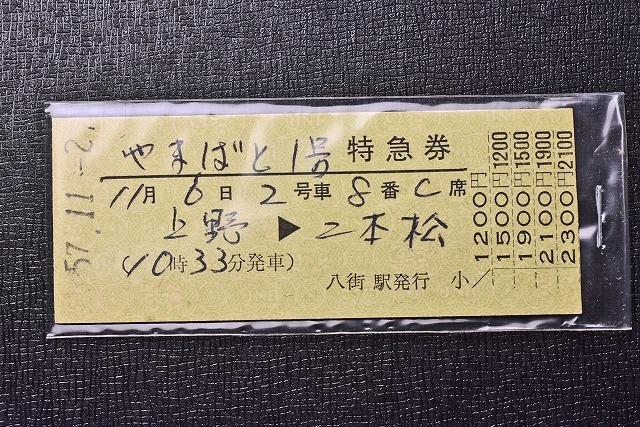 57.11.-2.
やまばと1号 特急券
11月6日2号車8番C席
上野▶二本松
(10時33分発車)
八街 駅発行 小/
1200円
1500円 1200
1900円 1500
2100円 1900
2300円 2100